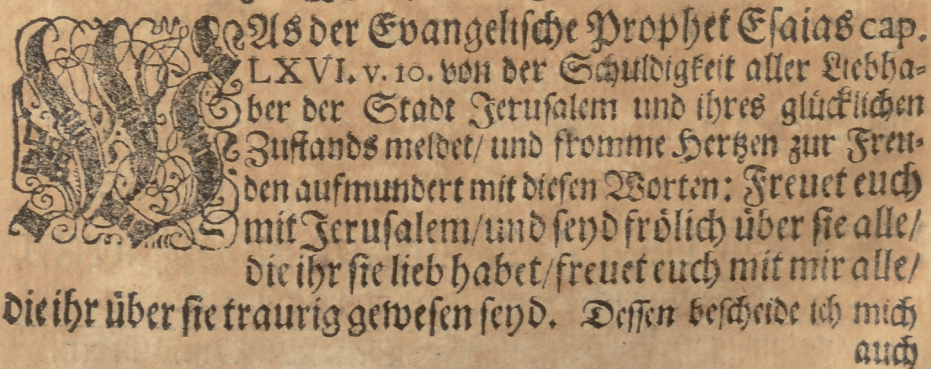 WAs der Evangelische Prophet Esaias cap.
LXVI. v. 10. von der Schuldigkeit aller Liebha-
ber der Stadt Jerusalem und ihres glücklichen
Zustands meldet/ und fromme Hertzen zur Freu-
den aufmundert mit diesen Worten: Freuet euch
mit Jerusalem/ und seyd frölich über sie alle/
die ihr sie lieb habet/ freuet euch mit mir alle/
die ihr über sie traurig gewesen seyd. Dessen bescheide ich mich
auch